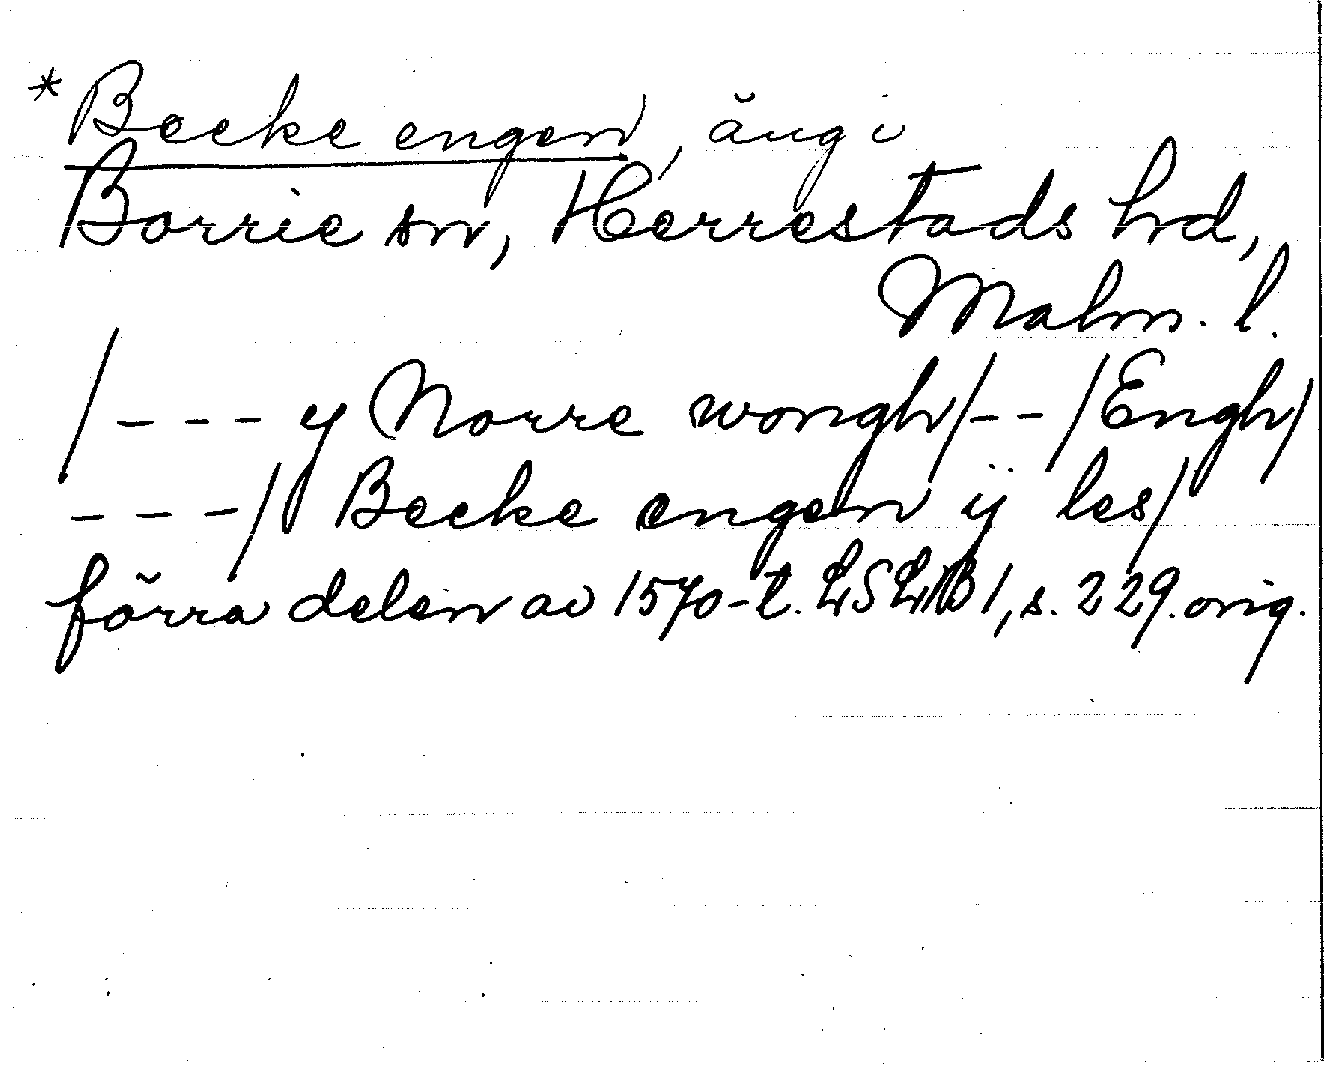 *Becke engen, äng i
Borrie sn, Herrestads hd,
Malm. l.
/--- y Norre wongh/--/Engh/
---/ Becke engen ÿ les/
förra delen av 1570-t. LSLJB 1, s. 229. orig.